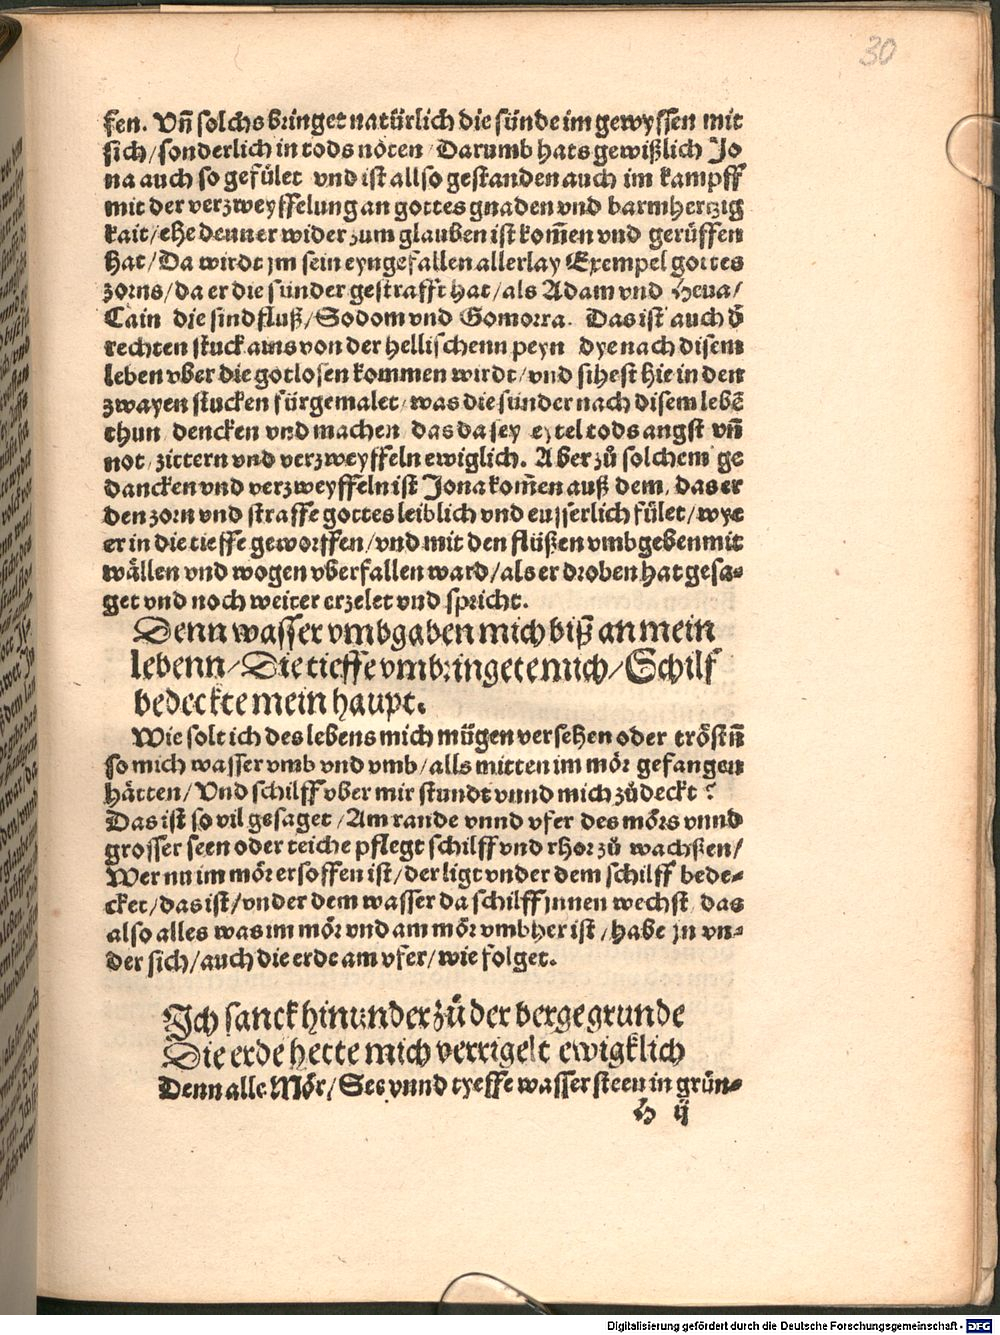 30
fen. Vñ solchs bringet natürlich die sünde im gewyssen mit
sich/sonderlich in tods nöten/Darumb hats gewißlich Jo
na auch so gefület vnd ist allso gestanden auch im kampff
mit der verzweyffelung an gottes gnaden vnd barmhertzig
kait/ehe denn er wider zum glauben ist kom̃en vnd gerüffen
hat/Da wirdt jm sein eyngefallen allerlay Exempel gottes
zorns/da er die sünder gestrafft hat/als Adam vnd Heua/
Cain die sindfluß/Sodom vnd Gomorra. Das ist auch d̃
rechten stuck ains von der hellischenn peyn dye nach disem
leben vber die gotlosen kommen wirdt/vnd sihest hie in den
zwayen stucken fürgemalet/was die sünder nach disem lebẽ
thun dencken vnd machen das da sey eytel tods angst vñ
not/zittern vnd verzweyffeln ewiglich. Aber zů solchem ge
dancken vnd verzweyffeln ist Jona kom̃en auß dem, das er
den zorn vnd straffe gottes leiblich vnd eusserlich fület/wye
er in die tieffe geworffen/vnd mit den flüßen vmbgeben mit
wällen vnd wogen vberfallen ward/als er droben hat gesa-
get vnd noch weiter erzelet vnd spricht.
Denn wasser vmbgaben mich biß an mein
lebenn/Die tieffe vmbringete mich/Schilf
bedeckte mein haupt.
Wie solt ich des lebens mich mügen versehen oder tröstñ
so mich wasser vmb vnd vmb/alls mitten im mör gefangen
hätten/Vnd schilff vber mir stundt vnnd mich zůdeckt?
Das ist so vil gesaget/Am rande vnnd vfer des mörs vnnd
grosser seen oder teiche pflegt schilff vnd rhor zů wachßen/
Wer nu im mör ersoffen ist/der ligt vnder dem schilff bede-
cket/das ist/vnder dem wasser da schilff jnnen wechst das
also alles was im mör vnd am mör vmbher ist/habe jn vn-
der sich/auch die erde am vfer/wie folget.
Ich sanck hinunder zů der berge grunde
Die erde hette mich verrigelt ewigklich
Denn alle Mör/See vnnd tyeffe wasser steen in grün-
H ij
Digitalisierung gefördert durch die Deutsche Forschungsgemeinschaft - DFG